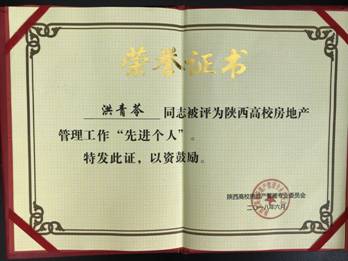 荣誉证书
洪青苓 同志被评为陕西高校房地产
管理工作“先进个人”。
特发此证，以资鼓励。
陕西高校房地产管理专业委员会
二〇一八年六月